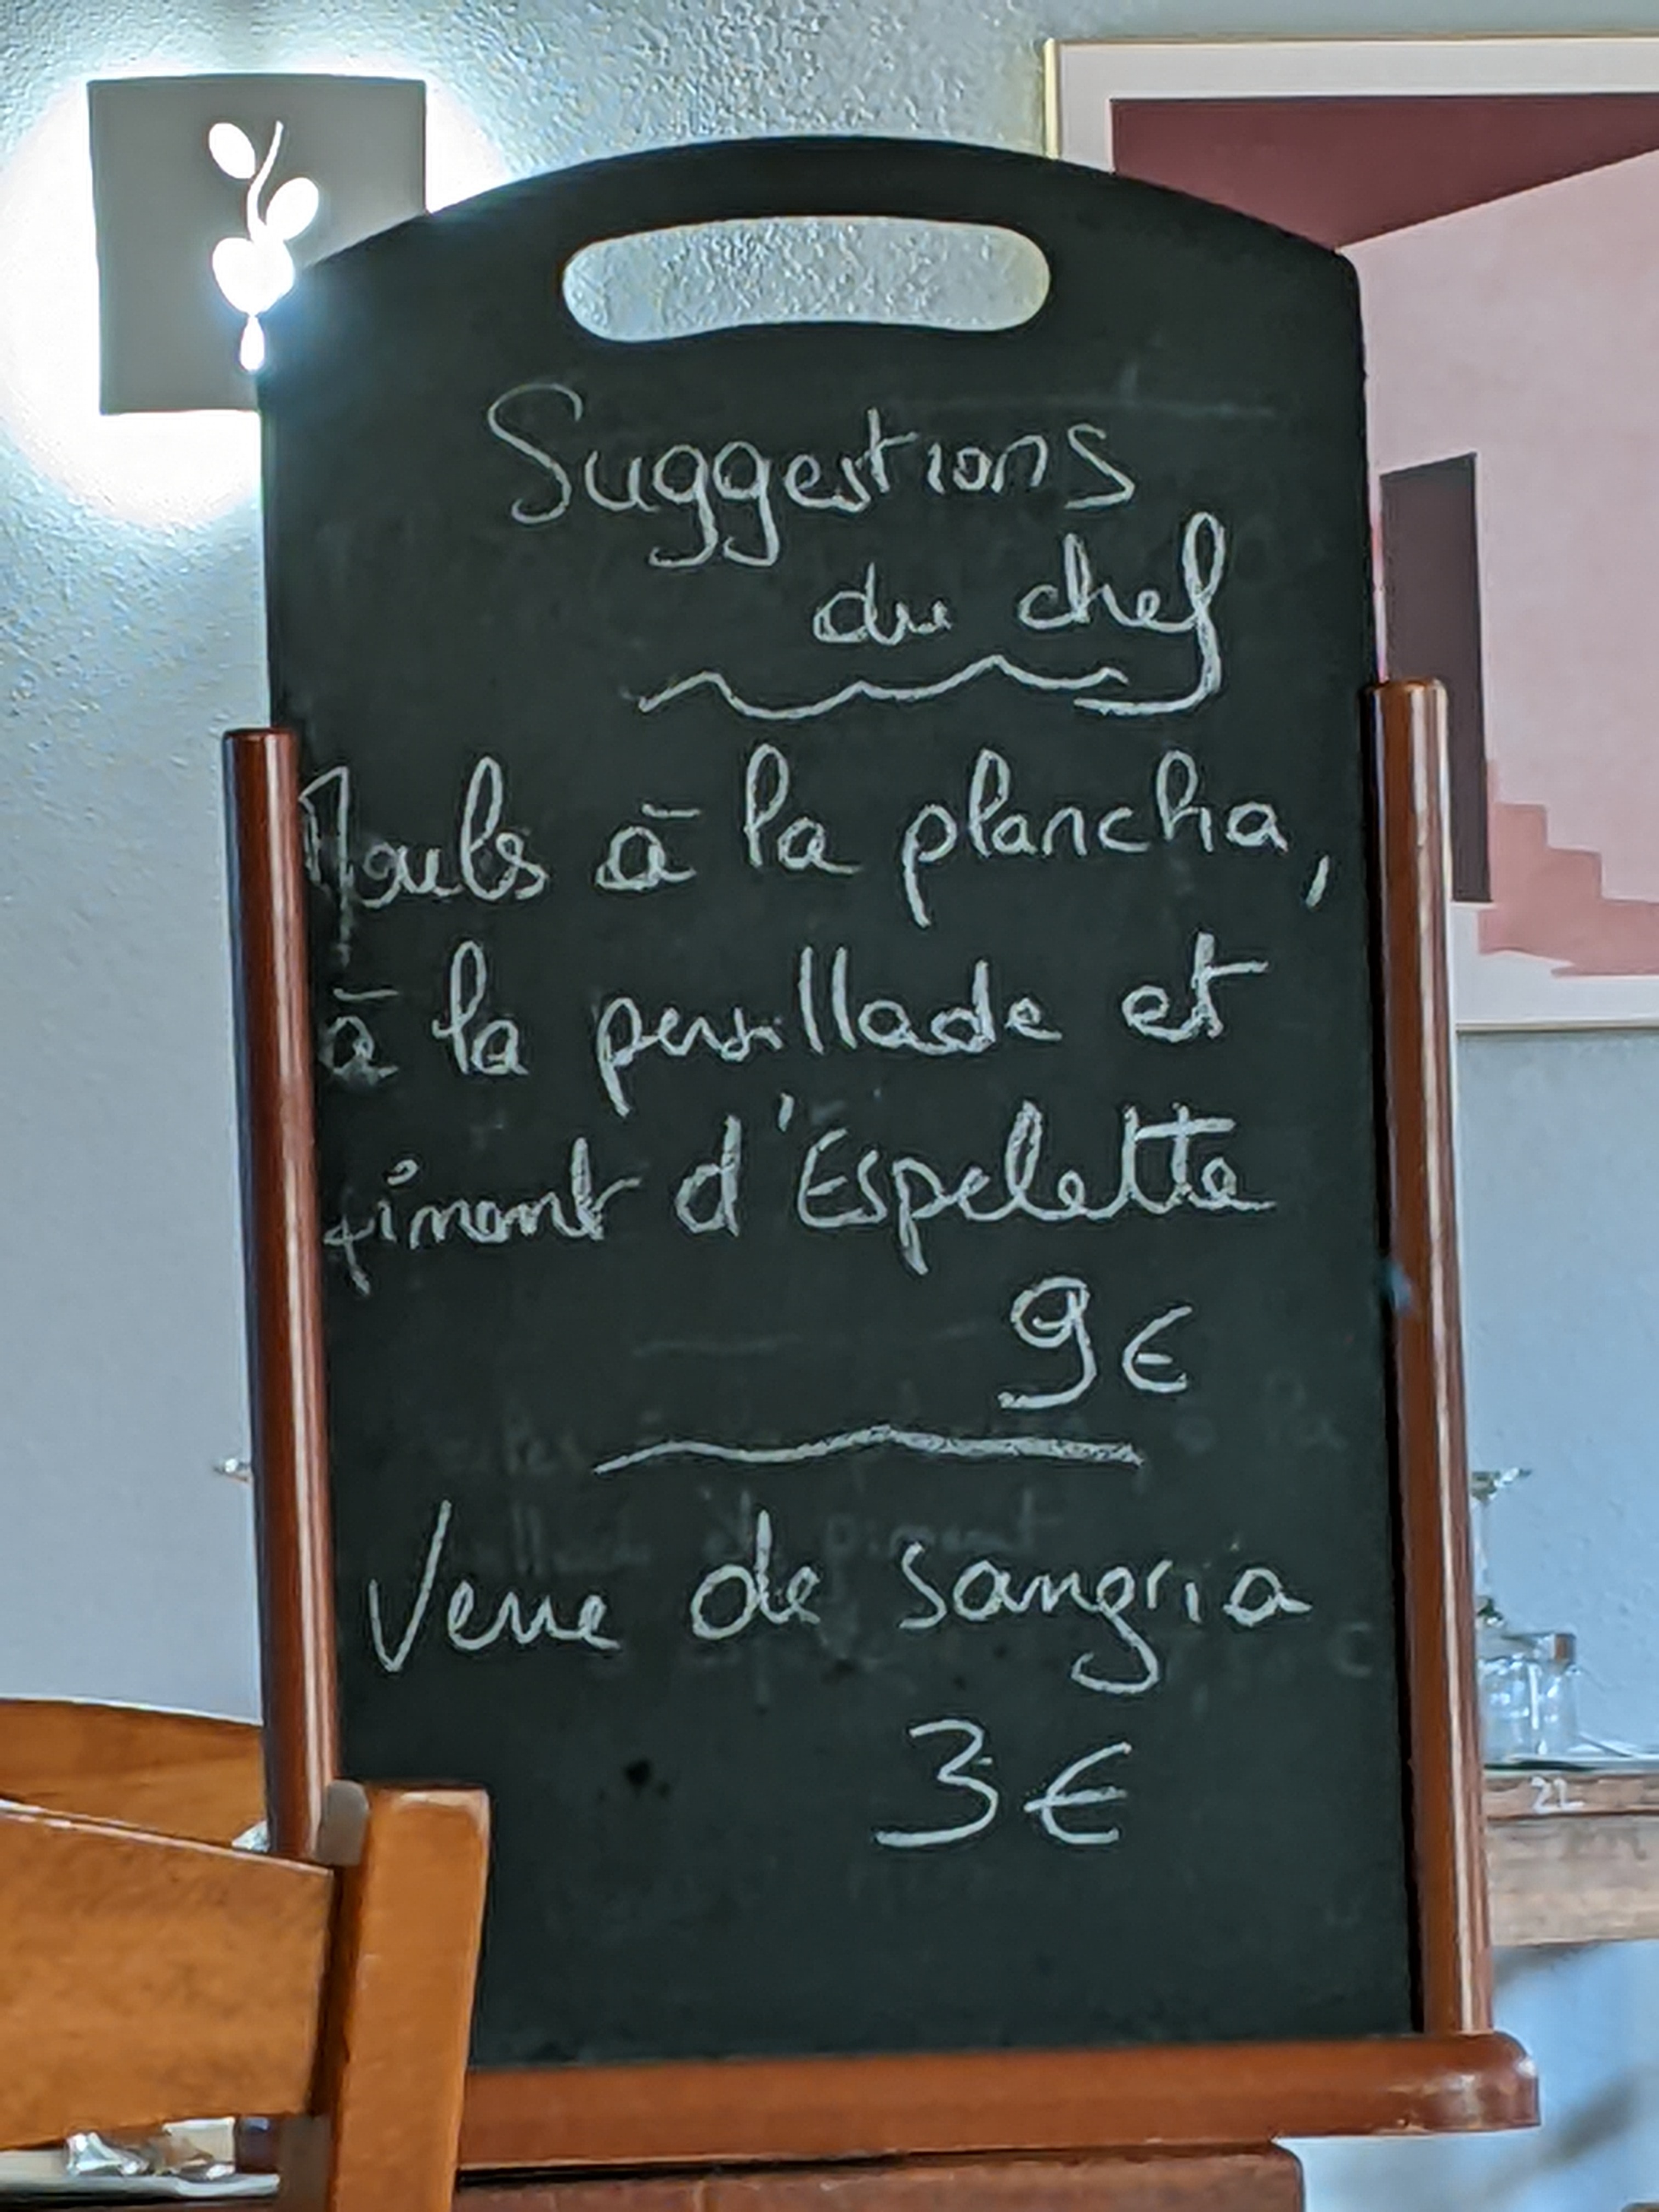 Suggestions
du chef
Mouls à la plancha,
à la persillade et
piment d'Espelette
9€
Verre de sangria
3€